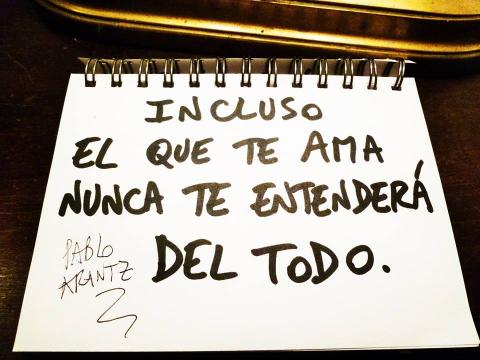 INCLUSO
EL QUE TE AMA
NUNCA TE ENTENDERÁ
DEL TODO.
PABLO
ARANTZ